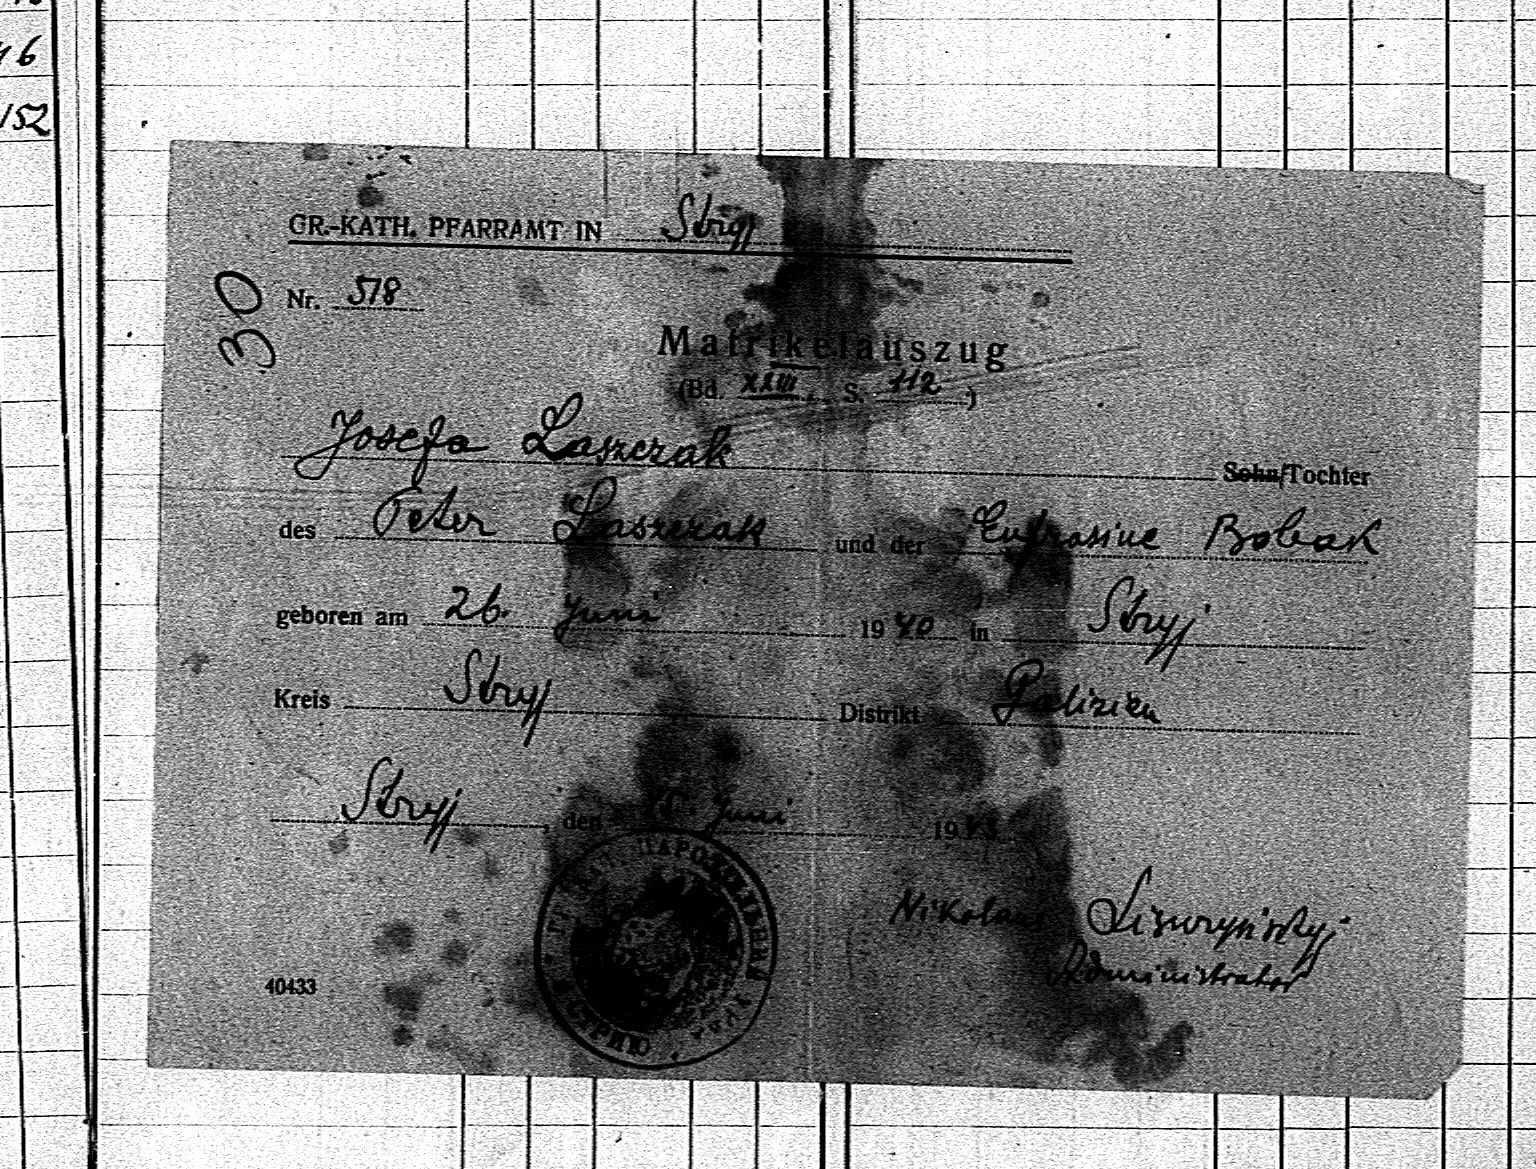 46
152
GR.-KATH. PFARRAMT IN Stryj
30
Nr. 578
Matrikelauszug
(Bd. XXIII, S. 112)
Josefa Laszczak Sohn/Tochter
des Peter Laszczak und der Eufrasine Bobeak
geboren am 26. Juni 1940 in Stryj
Kreis Stryj Distrikt Galizien
Stryj, den 15. Juni 1943
Nikolaus
Administrator
40433
СТРИЮ